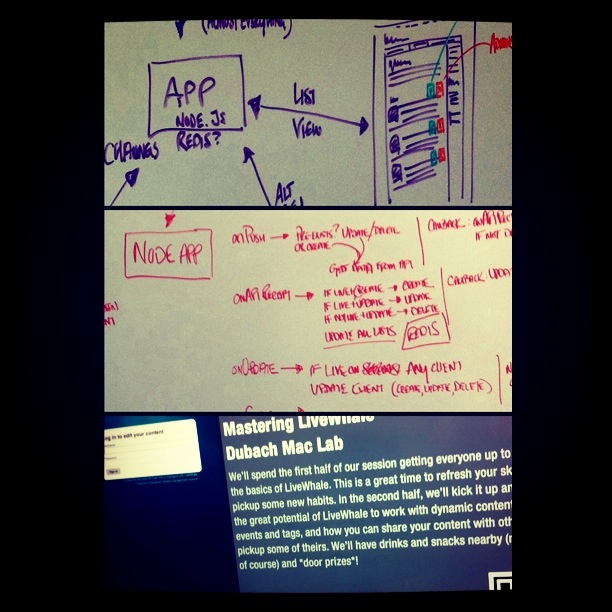 (ALMOST EVERYTHING)
APP
NODE.JS
REDIS?
LIST
VIEW
CHANNELS
ALT
NODE APP
ONPUSH → PRE-LISTS? UPDATE/DELETE
OR CREATE
GETS DATA FROM API
ONAPIRECEIPT → IF LIVE/CREATE → CREATE
IF LIVE+UPDATE → UPDATE
IF NOTLIVE+UPDATE → DELETE
UPDATE ALL LISTS REDIS
CALLBACK:
IF NOT
CALLBACK: UPDA
ONUPDATE → IF LIVE ON ANY CLIENT
UPDATE CLIENT (CREATE, UPDATE, DELETE)
Log in to edit your content
Mastering LiveWhale
Dubach Mac Lab
We'll spend the first half of our session getting everyone up to
the basics of LiveWhale. This is a great time to refresh your sk
pickup some new habits. In the second half, we'll kick it up an
the great potential of LiveWhale to work with dynamic conten
events and tags, and how you can share your content with oth
pickup some of theirs. We'll have drinks and snacks nearby (n
of course) and "door prizes"!